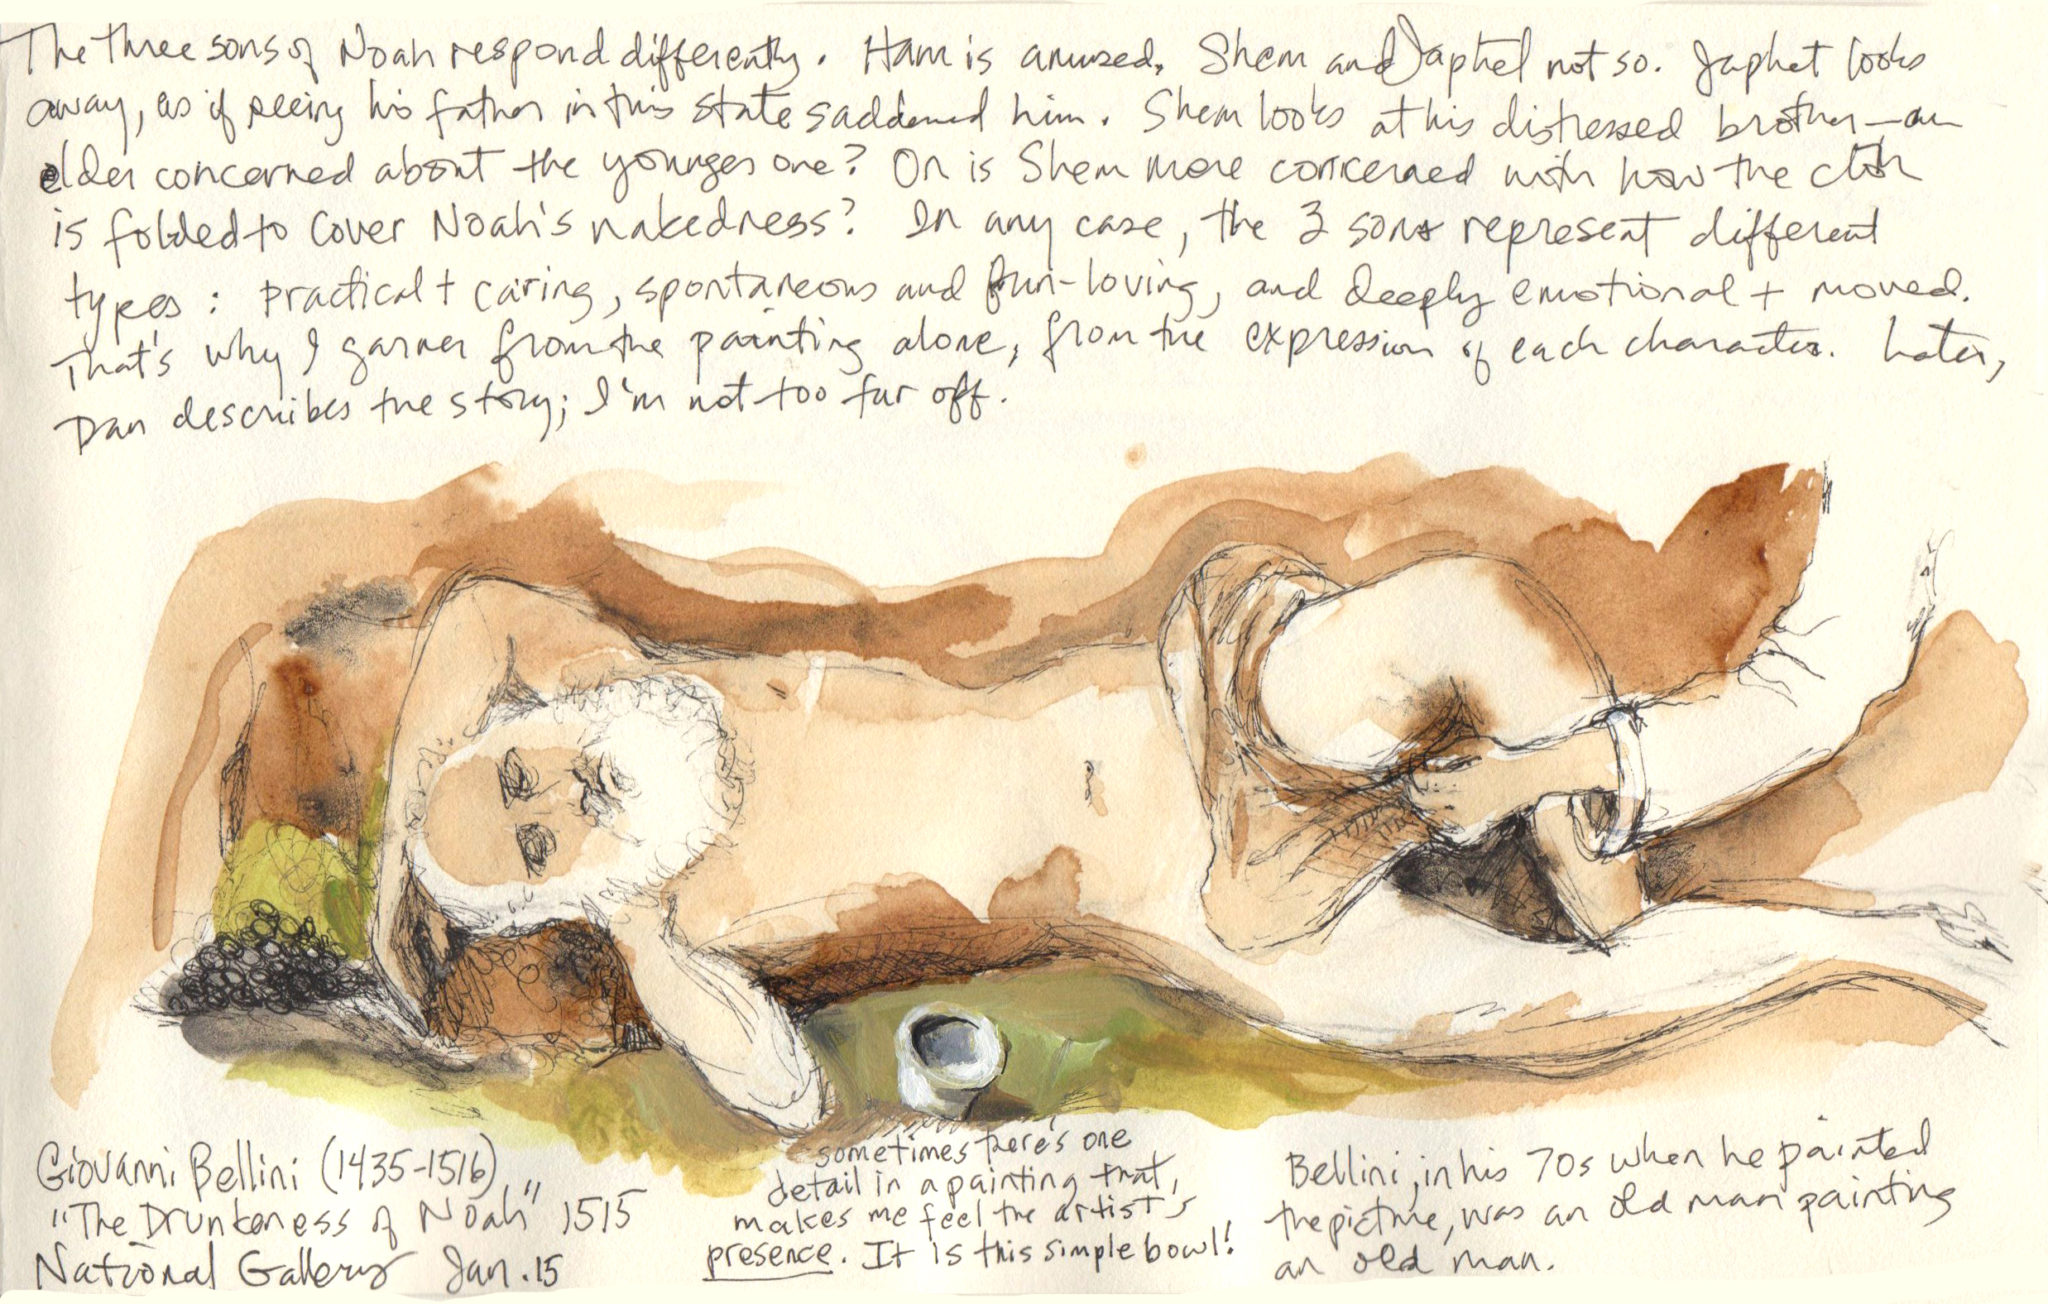 The three sons of Noah respond differently. Ham is amused. Shem and Japhet not so. Japhet looks
away, as if seeing his father in this state saddened him. Shem looks at his distressed brother—an
elder concerned about the younger one? Or is Shem more concerned with how the cloth
is folded to cover Noah's nakedness? In any case, the 3 sons represent different
types: practical + caring, spontaneous and fun-loving, and deeply emotional + moved.
That's why I garner from the painting alone, from the expression of each character. Later,
Dan describes the story; I'm not too far off.
Giovanni Bellini (1435-1516)
"The Drunkeness of Noah" 1515
National Gallery Jan. 15
sometimes there's one
detail in a painting that,
makes me feel the artist's
presence. It is this simple bowl!
Bellini, in his 70s when he painted
the picture, was an old man painting
an old man.